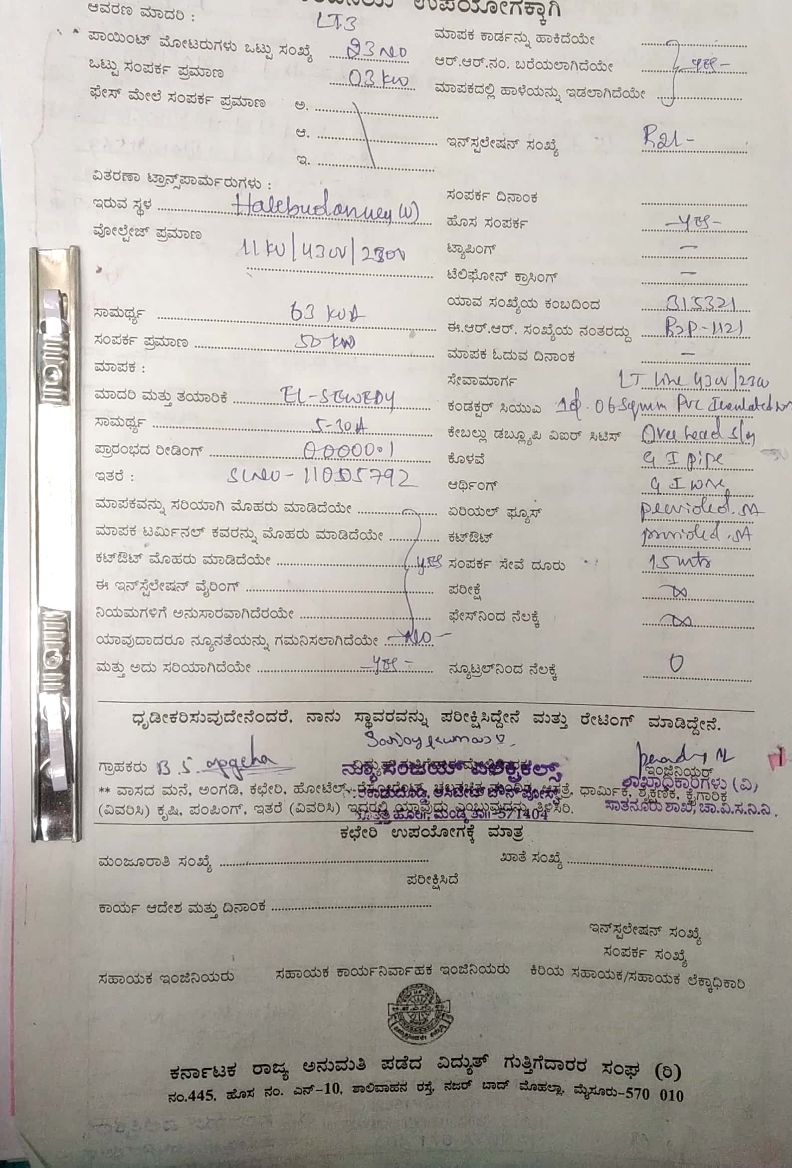 ಉಪಯೋಗಕ್ಕಾಗಿ
ಆವರಣ ಮಾದರಿ : LT3
ಪಾಯಿಂಟ್ ಮೋಟರುಗಳು ಒಟ್ಟು ಸಂಖ್ಯೆ 03 NO
ಒಟ್ಟು ಸಂಪರ್ಕ ಪ್ರಮಾಣ 03 KW
ಫೇಸ್ ಮೇಲೆ ಸಂಪರ್ಕ ಪ್ರಮಾಣ ಅ.
ಆ.
ಇ.
ವಿತರಣಾ ಟ್ರಾನ್ಸ್‌ಪಾರ್ಮರುಗಳು :
ಇರುವ ಸ್ಥಳ Halebudanuru (V)
ವೋಲ್ಟೇಜ್ ಪ್ರಮಾಣ 11 KV/430V/230V
ಸಾಮರ್ಥ್ಯ 63 KVA
ಸಂಪರ್ಕ ಪ್ರಮಾಣ 50 KW
ಮಾಪಕ :
ಮಾದರಿ ಮತ್ತು ತಯಾರಿಕೆ EL-SEWEDY
ಸಾಮರ್ಥ್ಯ 5-30A
ಪ್ರಾರಂಭದ ರೀಡಿಂಗ್ 000000.1
ಇತರೆ : SLNO - 11005792
ಮಾಪಕವನ್ನು ಸರಿಯಾಗಿ ಮೊಹರು ಮಾಡಿದೆಯೇ
ಮಾಪಕ ಟರ್ಮಿನಲ್ ಕವರನ್ನು ಮೊಹರು ಮಾಡಿದೆಯೇ
ಕಟ್‌ಔಟ್ ಮೊಹರು ಮಾಡಿದೆಯೇ yes
ಈ ಇನ್‌ಸ್ಟಲೇಷನ್ ವೈರಿಂಗ್
ನಿಯಮಗಳಿಗೆ ಅನುಸಾರವಾಗಿದೆರಯೇ
ಯಾವುದಾದರೂ ನ್ಯೂನತೆಯನ್ನು ಗಮನಿಸಲಾಗಿದೆಯೇ - NO -
ಮತ್ತು ಅದು ಸರಿಯಾಗಿದೆಯೇ - yes -
ಮಾಪಕ ಕಾರ್ಡನ್ನು ಹಾಕಿದೆಯೇ
ಆರ್.ಆರ್.ನಂ. ಬರೆಯಲಾಗಿದೆಯೇ - yes -
ಮಾಪಕದಲ್ಲಿ ಹಾಳೆಯನ್ನು ಇಡಲಾಗಿದೆಯೇ
ಇನ್‌ಸ್ಪಲೇಷನ್ ಸಂಖ್ಯೆ
ಸಂಪರ್ಕ ದಿನಾಂಕ
ಹೊಸ ಸಂಪರ್ಕ - yes -
ಟ್ಯಾಪಿಂಗ್ -
ಟೆಲಿಫೋನ್ ಕ್ರಾಸಿಂಗ್ -
ಯಾವ ಸಂಖ್ಯೆಯ ಕಂಬದಿಂದ 315321
ಈ.ಆರ್.ಆರ್. ಸಂಖ್ಯೆಯ ನಂತರದ್ದು R2P-1121
ಮಾಪಕ ಓದುವ ದಿನಾಂಕ -
ಸೇವಾಮಾರ್ಗ LT line 430/230
ಕಂಡಕ್ಟರ್ ಸಿಯುವಿ 06 Sqmm PVC Insulated
ಕೇಬಲ್ಲು ಡಬ್ಲ್ಯೂಪಿ ವಿಐರ್ ಸಿಟಿಸ್ Over head
ಕೊಳವೆ G I pipe
ಆರ್ಥಿಂಗ್ G I wire
ಏರಿಯಲ್ ಫ್ಯೂಸ್ provided. 5A
ಕಟ್‌ಔಟ್ provided. 5A
ಸಂಪರ್ಕ ಸೇವೆ ದೂರು 15 mtr
ಪರೀಕ್ಷೆ ∞
ಫೇಸ್‌ನಿಂದ ನೆಲಕ್ಕೆ ∞
ನ್ಯೂಟ್ರಲ್‌ನಿಂದ ನೆಲಕ್ಕೆ 0
ಧೃಡೀಕರಿಸುವುದೇನೆಂದರೆ, ನಾನು ಸ್ಥಾವರವನ್ನು ಪರೀಕ್ಷಿಸಿದ್ದೇನೆ ಮತ್ತು ರೇಟಿಂಗ್ ಮಾಡಿದ್ದೇನೆ.
ಗ್ರಾಹಕರು
ನ್ಯೂ ಸಂಜಯ್ ಎಲೆಕ್ಟ್ರಿಕಲ್ಸ್
ಇಂಜಿನಿಯರ್
ಶಾಖಾಧಿಕಾರಿಗಳು (ವಿ)
ಸಾತನೂರು ಶಾಖೆ, ಚಾ.ವಿ.ಸ.ನಿ.ನಿ.
** ವಾಸದ ಮನೆ, ಅಂಗಡಿ, ಕಛೇರಿ, ಹೋಟೆಲ್, ಧಾರ್ಮಿಕ, ಶೈಕ್ಷಣಿಕ, ಕೈಗಾರಿಕೆ
(ವಿವರಿಸಿ) ಕೃಷಿ, ಪಂಪಿಂಗ್, ಇತರೆ (ವಿವರಿಸಿ) ಇದರಲ್ಲಿ ಯಾವುದು ಎಂಬುವುದನ್ನು ತಿಳಿಸಿರಿ.
ಮಂಡ್ಯ ತಾ॥-571404
ಕಛೇರಿ ಉಪಯೋಗಕ್ಕೆ ಮಾತ್ರ
ಮಂಜೂರಾತಿ ಸಂಖ್ಯೆ
ಖಾತೆ ಸಂಖ್ಯೆ
ಪರೀಕ್ಷಿಸಿದೆ
ಕಾರ್ಯ ಆದೇಶ ಮತ್ತು ದಿನಾಂಕ
ಇನ್‌ಸ್ಪಲೇಷನ್ ಸಂಖ್ಯೆ
ಸಂಪರ್ಕ ಸಂಖ್ಯೆ
ಸಹಾಯಕ ಇಂಜಿನಿಯರು ಸಹಾಯಕ ಕಾರ್ಯನಿರ್ವಾಹಕ ಇಂಜಿನಿಯರು ಕಿರಿಯ ಸಹಾಯಕ/ಸಹಾಯಕ ಲೆಕ್ಕಾಧಿಕಾರಿ
ಕರ್ನಾಟಕ ರಾಜ್ಯ ಅನುಮತಿ ಪಡೆದ ವಿದ್ಯುತ್ ಗುತ್ತಿಗೆದಾರರ ಸಂಘ (ರಿ)
ನಂ.445, ಹೊಸ ನಂ. ಎನ್-10, ಶಾಲಿವಾಹನ ರಸ್ತೆ, ನಜರ್ ಬಾದ್ ಮೊಹಲ್ಲಾ, ಮೈಸೂರು-570 010